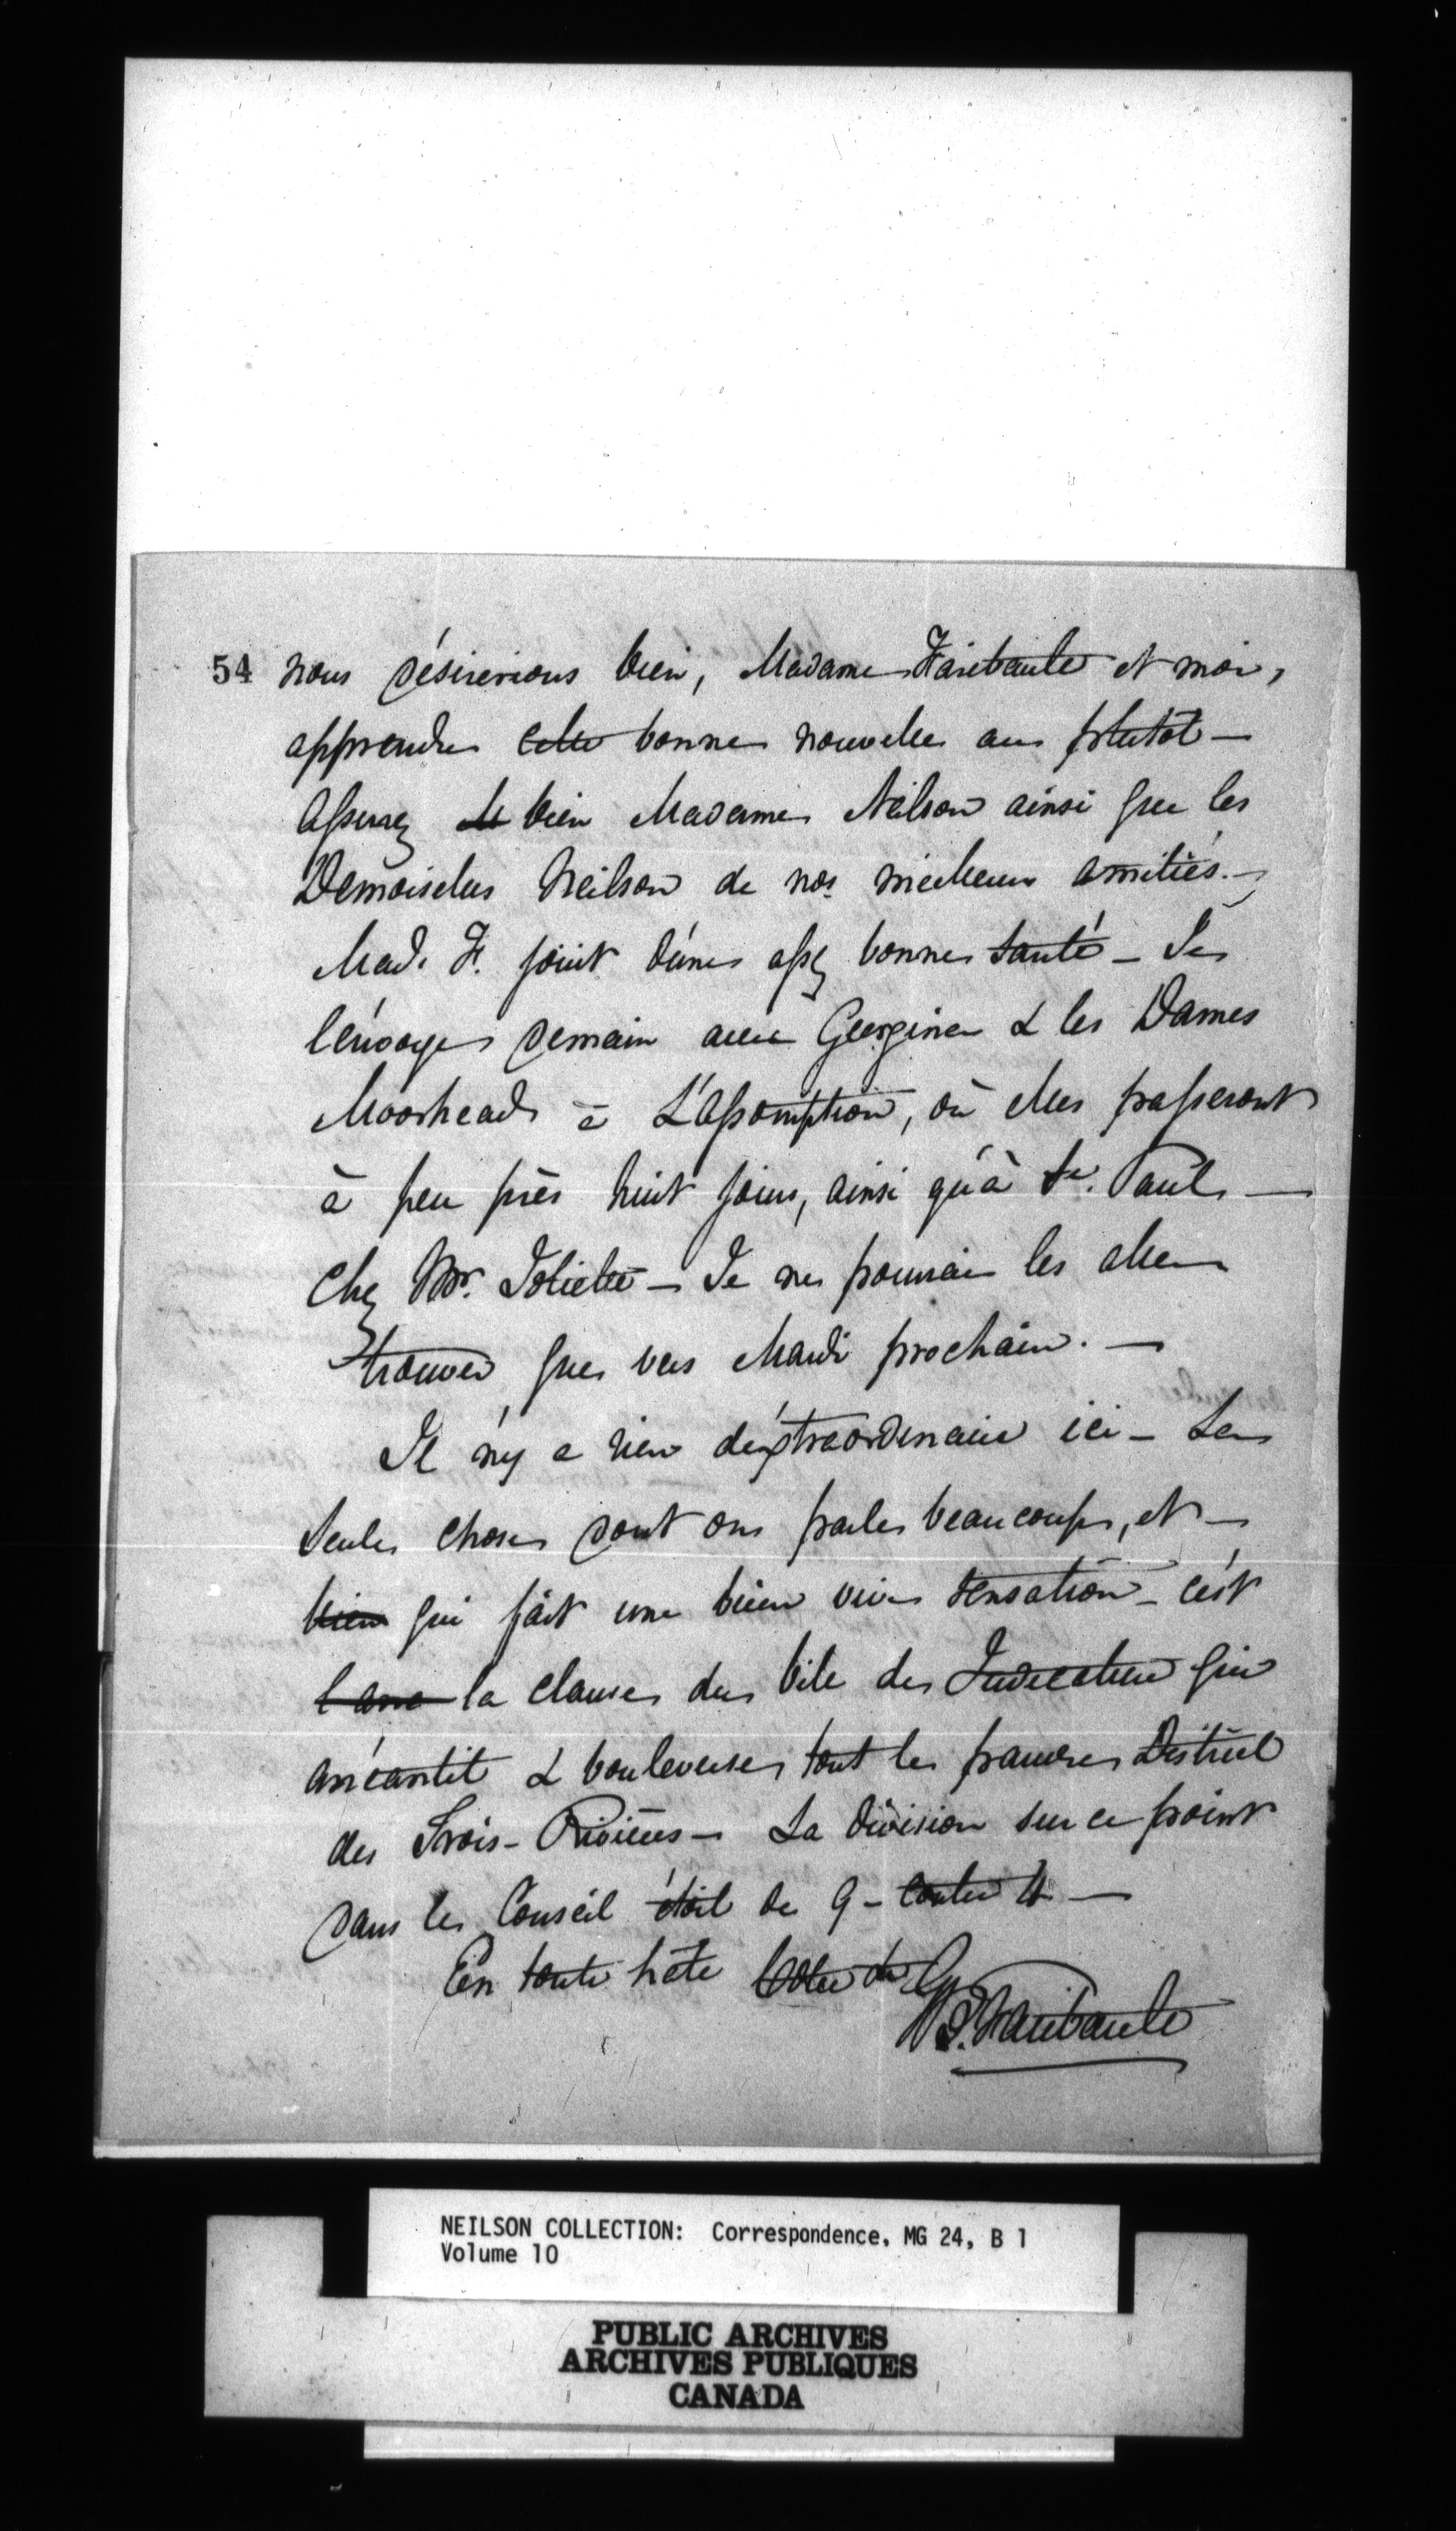 54 nous désirerions bien, Madame Faribault et moi,
apprendre cette bonne nouvelle au plutôt —
Assurez bien Madame Neilson ainsi que les
Demoiselles Neilson de nos meilleures amitiés. —
Mad. F. jouit d'une assez bonne santé — Je
l'envoye demain avec Georgina & les Dames
Moorhead à L'Assomption, où elles passeront
à peu près huit jours, ainsi qu'à St. Paul —
chez Mr. Joliette — Je ne pourrai les aller
trouver que vers Mardi prochain. —
Il n'y a rien d'extraordinaire ici — La
seule chose dont on parle beaucoup, et —
bien qui fait une bien vive sensation — c'est
la clause du bile de Judicature qui
anéantit & bouleverse tout le pauvre District
des Trois-Rivières — La division sur ce point
dans le Conseil étoit de 9 — contre 4 —
En toute hâte Votre
Faribault
NEILSON COLLECTION: Correspondence, MG 24, B 1
Volume 10
PUBLIC ARCHIVES
ARCHIVES PUBLIQUES
CANADA